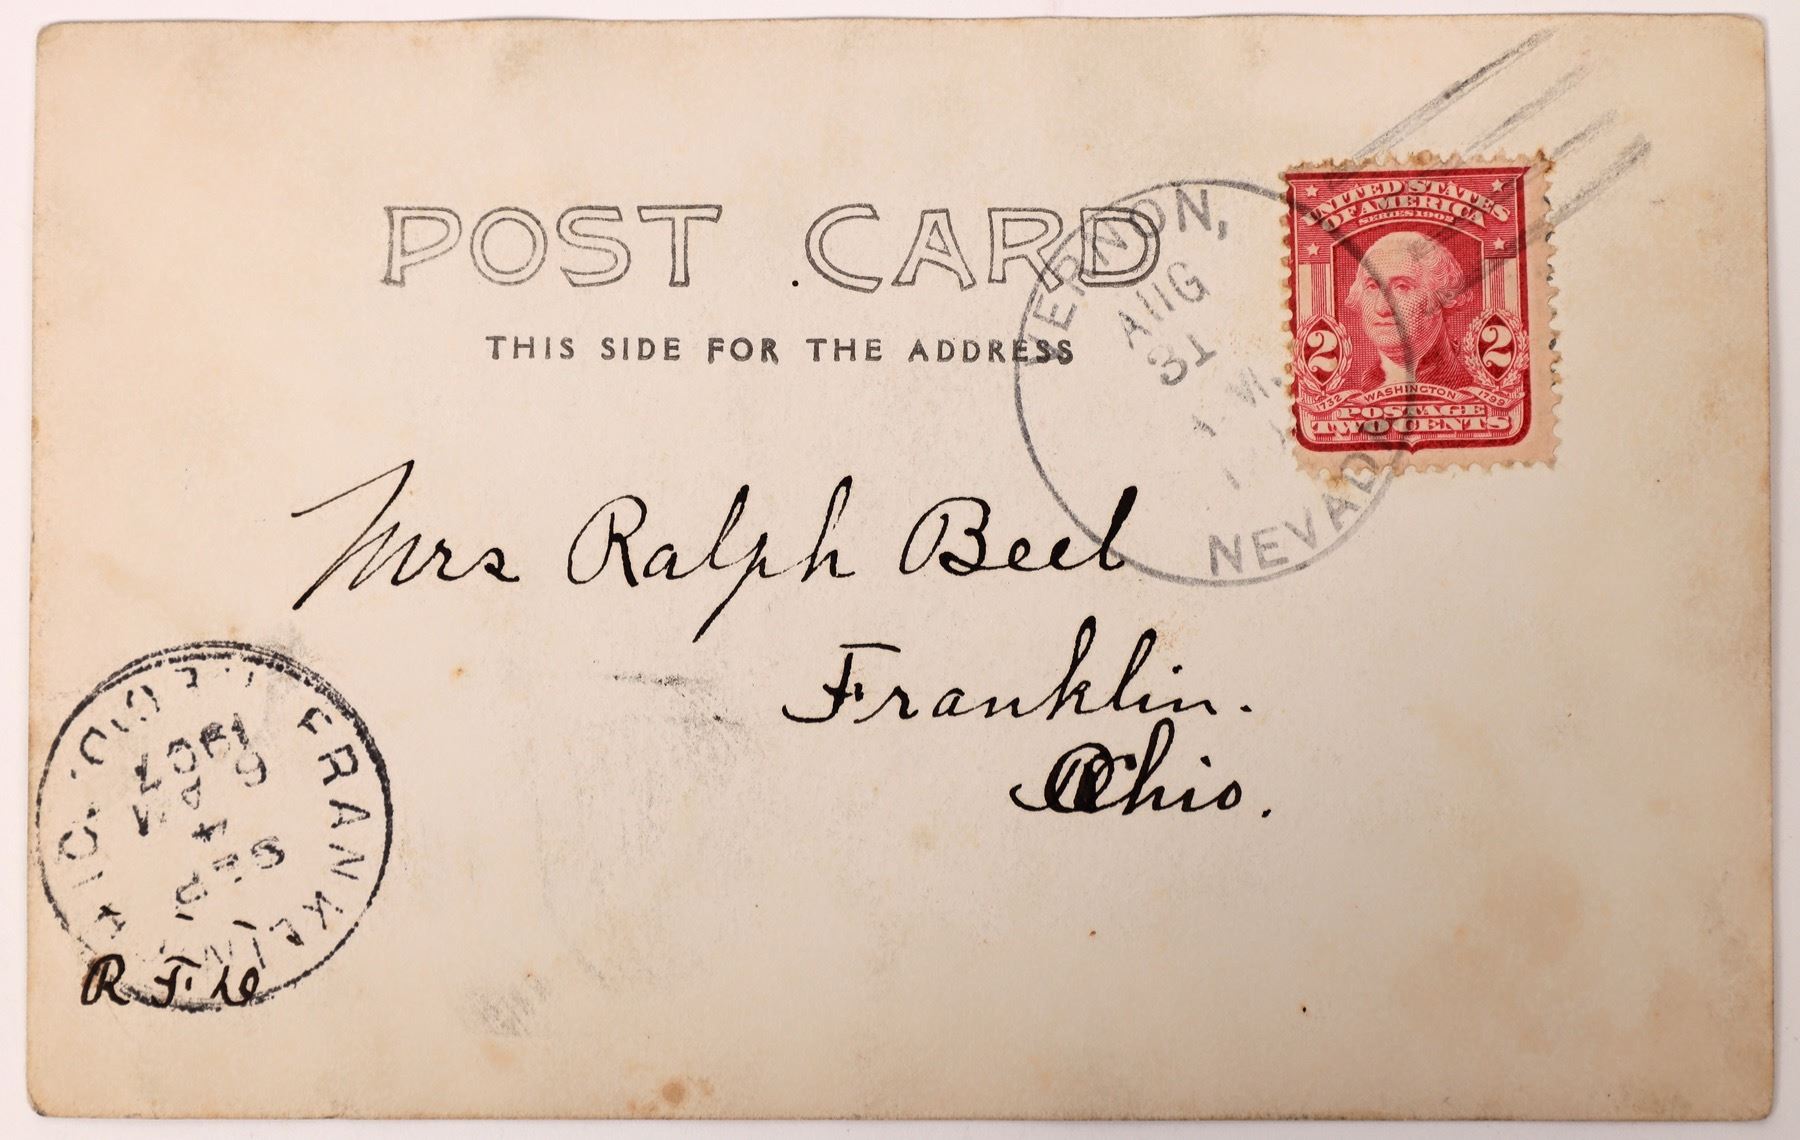 POST CARD
THIS SIDE FOR THE ADDRESS
VERNON,
AUG
31
NEVADA
UNITED STATES
OF AMERICA
SERIES 1902
2 2
1732 WASHINGTON 1799
POSTAGE
TWO CENTS
Mrs Ralph Beel
Franklin.
Ohio.
FRANKLIN,
OHIO.
SEP
4
6 AM
1907
R F D